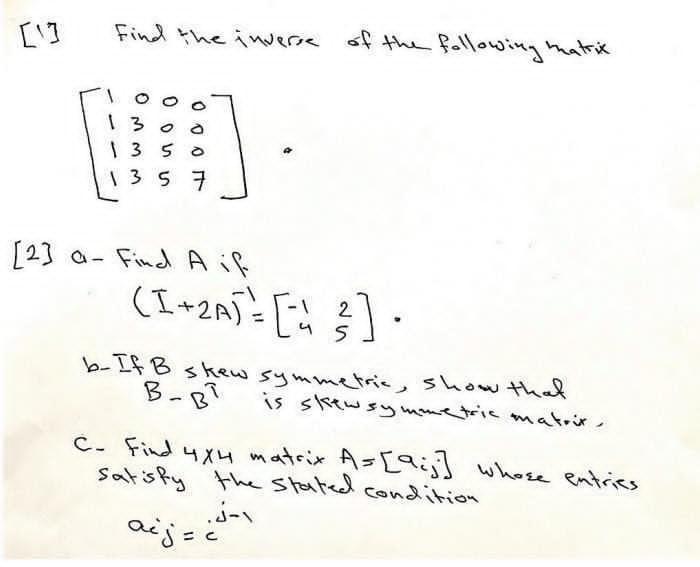 [1] Find the inverse of the following matrix
1 0 0 0
1 3 0 0
1 3 5 0
1 3 5 7
[2] a- Find A if
(I+2A)⁻¹ = [-1 2
4 5].
b- If B skew symmetric, show that
B-Bᵀ is skew symmetric matrix.
C- Find 4x4 matrix A=[aij] whose entries
satisfy the stated condition
aij = i^j-1